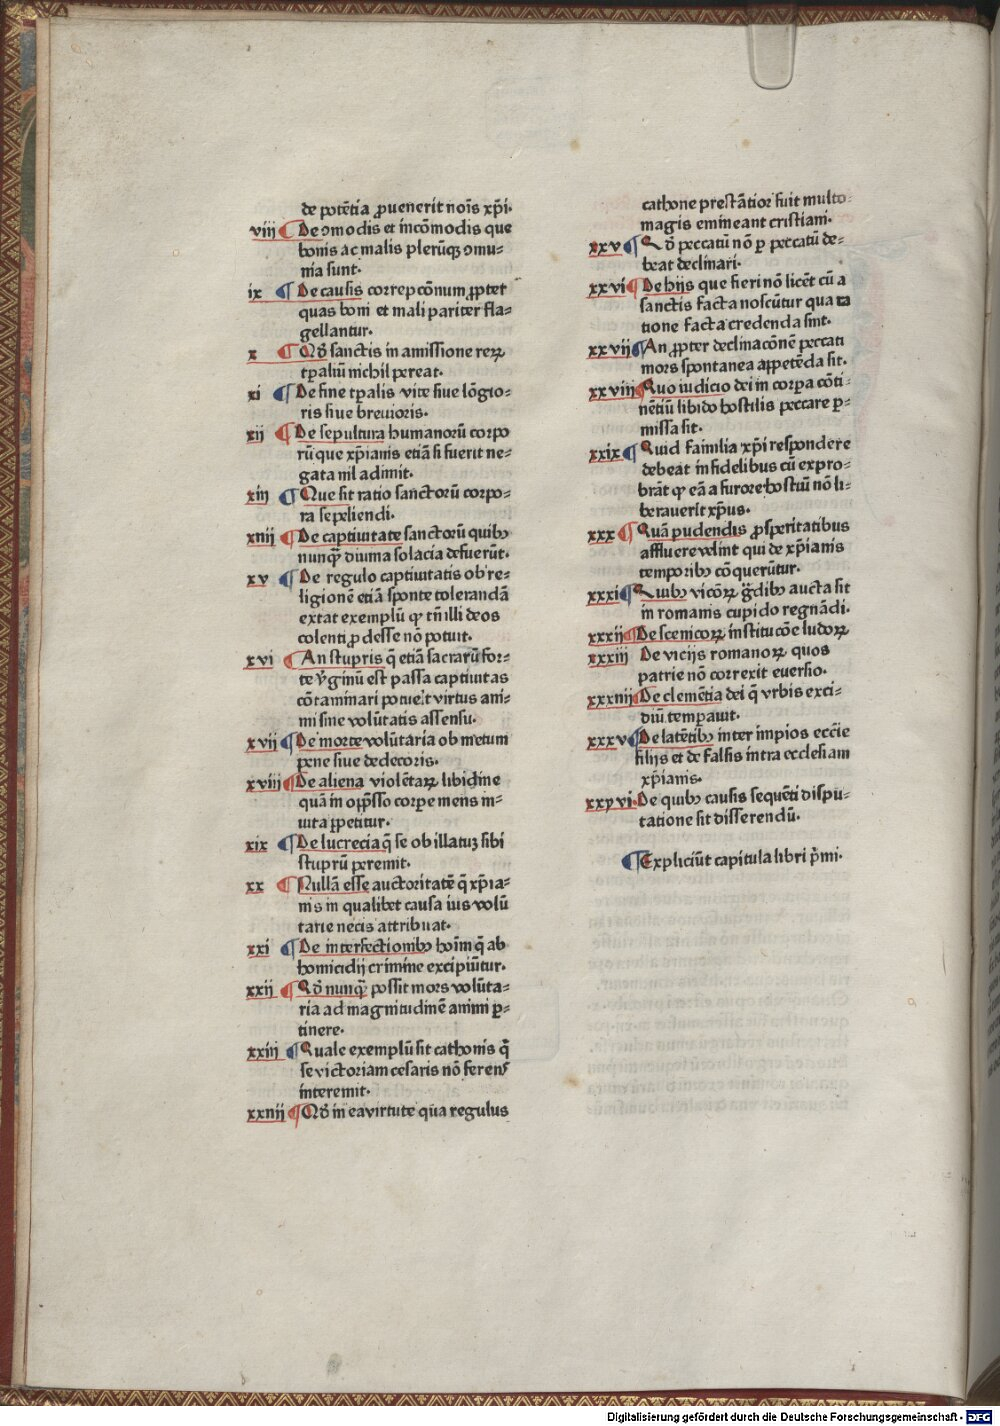 de potētia ꝓuenerit noīs xp̄i.
viii De ꝯmodis et incōmodis que
bonis ac malis plerūqꝫ ꝯmu-
nia sunt.
ix De causis correpcōnum ꝓpter
quas boni et mali pariter fla-
gellantur.
x Qd̛ sanctis in amissione reꝝ
tꝑaliū nichil pereat.
xi De fine tꝑalis vite siue lōgio-
ris siue breuioris.
xii De sepultura humanorū corpo
rū que xp̄ianis etiā si fuerit ne-
gata nil adimit.
xiii Que sit ratio sanctorū corpo-
ra sepeliendi.
xiiii De captiuitate sanctorū quibꝰ
nunqͣꝫ diuina solacia defuerūt.
xv De regulo captiuitatis ob re-
ligionē etiā sponte tolerandā
extat exemplū qͥ tn̄ illi deos
colenti ꝓdesse nō potuit.
xvi An stupris q̄ etiā sacrarū for-
te v̛ginū est passa captiuitas
cōtaminari potuel̛t virtus ani-
mi sine volūtatis assensu.
xvii De morte volūtaria ob metum
pene siue dedecoris.
xviii De aliena violētaꝝ libidine
quā in oꝓ̄sso corpe mens in-
uita ꝑpetitur.
xix De lucrecia q̄ se ob illatuꝫ sibi
stuprū peremit.
xx Nullā esse auctoritatē q̄ xp̄ia-
nis in qualibet causa ius volū
tarie necis attribuat.
xxi De interfectionibꝰ hoīm q̄ ab
homicidij crimine excipiūtur.
xxii Qd̛ nunqͣꝫ possit mors volūta-
ria ad magnitudinē animi ꝑ-
tinere.
xxiii Quale exemplū sit cathonis q̄
se victoriam cesaris nō ferens
interemit.
xxiiii Qd̛ in ea virtute qͣ regulus
cathone prestātior fuit multo-
magis emineant cristiani.
xxv Qd̛ peccatū nō ꝑ peccatū de-
beat declinari.
xxvi De hijs que fieri nō licēt cū a
sanctis facta noscūtur qua ra
tione facta credenda sint.
xxvii An ꝓpter declinacōnē peccati
mors spontanea appetēda sit.
xxviii Quo iudicio dei in corꝑa cōti-
nētiū libido hostilis peccare ꝑ-
missa sit.
xxix Quid familia xp̄i respondere
debeat infidelibus cū expro-
brāt qͥ eā a furore hostiū nō li-
berauerit xp̄us.
xxx Quā pudendis ꝓsperitatibus
affluere velint qui de xp̄ianis
temporibꝰ cōquerūtur.
xxxi Quibꝰ vicōꝝ gͣdibꝰ aucta sit
in romanis cupido regnādi.
xxxii De scenicoꝝ institucōe ludoꝝ
xxxiii De vicijs romanoꝝ quos
patrie nō correxit euersio.
xxxiiii De clemētia dei q̄ vrbis exci-
diū temꝑauit.
xxxv De latētibꝰ inter impios ecc̄ie
filijs et de falsis intra ecclesiam
xp̄ianis.
xxxvi De quibꝰ causis sequēti dispu-
tatione sit disserendū.
Expliciūt capitula libri p̄mi.
Digitalisierung gefördert durch die Deutsche Forschungsgemeinschaft - DFG